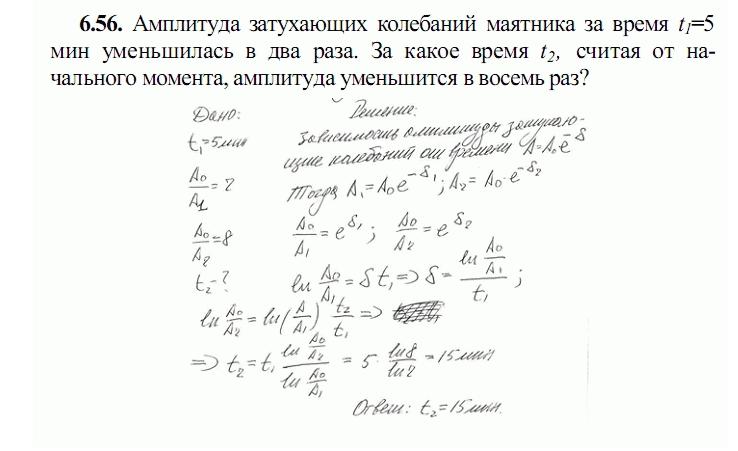 6.56. Амплитуда затухающих колебаний маятника за время t₁=5
мин уменьшилась в два раза. За какое время t₂, считая от на-
чального момента, амплитуда уменьшится в восемь раз?
Дано:
t₁=5мин
A₀/A₁ = 2
A₀/A₂ = 8
t₂-?
Решение:
Зависимость амплитуды затухаю-
щие колебаний от времени A=A₀e^-δ
Тогда A₁=A₀e^-δ₁; A₂= A₀·e^-δ₂
A₀/A₁ = e^δ₁; A₀/A₂ = e^δ₂
ln A₀/A₁ = δt₁ => δ = (ln A₀/A₁)/t₁;
ln A₀/A₂ = ln(A/A₁) t₂/t₁ =>
=> t₂=t₁ (ln A₀/A₂)/(ln A₀/A₁) = 5·ln8/ln2 = 15мин
Ответ: t₂=15мин.